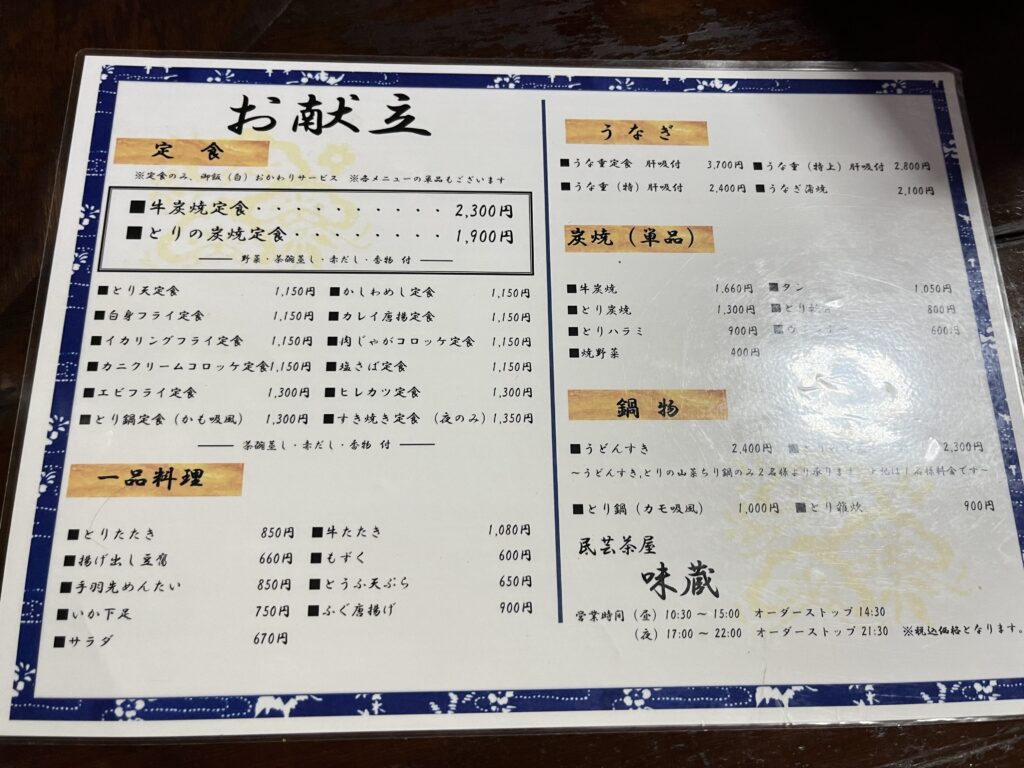 お献立
定食
※定食のみ、御飯(白)おかわりサービス ※各メニューの単品もございます
■牛炭焼定食・・・・・・・・・・2,300円
■とりの炭焼定食・・・・・・・・1,900円
野菜・茶碗蒸し・赤だし・香物 付
■とり天定食 1,150円 ■かしわめし定食 1,150円
■白身フライ定食 1,150円 ■カレイ唐揚定食 1,150円
■イカリングフライ定食 1,150円 ■肉じゃがコロッケ定食 1,150円
■カニクリームコロッケ定食1,150円 ■塩さば定食 1,150円
■エビフライ定食 1,300円 ■ヒレカツ定食 1,300円
■とり鍋定食(かも吸風) 1,300円 ■すき焼き定食 (夜のみ) 1,350円
茶碗蒸し・赤だし・香物 付
一品料理
■とりたたき 850円 ■牛たたき 1,080円
■揚げ出し豆腐 660円 ■もずく 600円
■手羽先めんたい 850円 ■とうふ天ぷら 650円
■いか下足 750円 ■ふぐ唐揚げ 900円
■サラダ 670円
うなぎ
■うな重定食 肝吸付 3,700円 ■うな重(特上)肝吸付 2,800円
■うな重(特)肝吸付 2,400円 ■うなぎ蒲焼 2,100円
炭焼(単品)
■牛炭焼 1,660円 ■タン 1,050円
■とり炭焼 1,300円 ■とり 800円
■とりハラミ 900円 600円
■焼野菜 400円
鍋物
■うどんすき 2,400円 2,300円
～うどんすき,とりの山菜ちり鍋のみ2名様より承ります 料金です～
■とり鍋(カモ吸風) 1,000円 ■とり雑炊 900円
民芸茶屋
味蔵
営業時間(昼)10:30～15:00 オーダーストップ 14:30
(夜)17:00～22:00 オーダーストップ 21:30 ※税込価格となります。